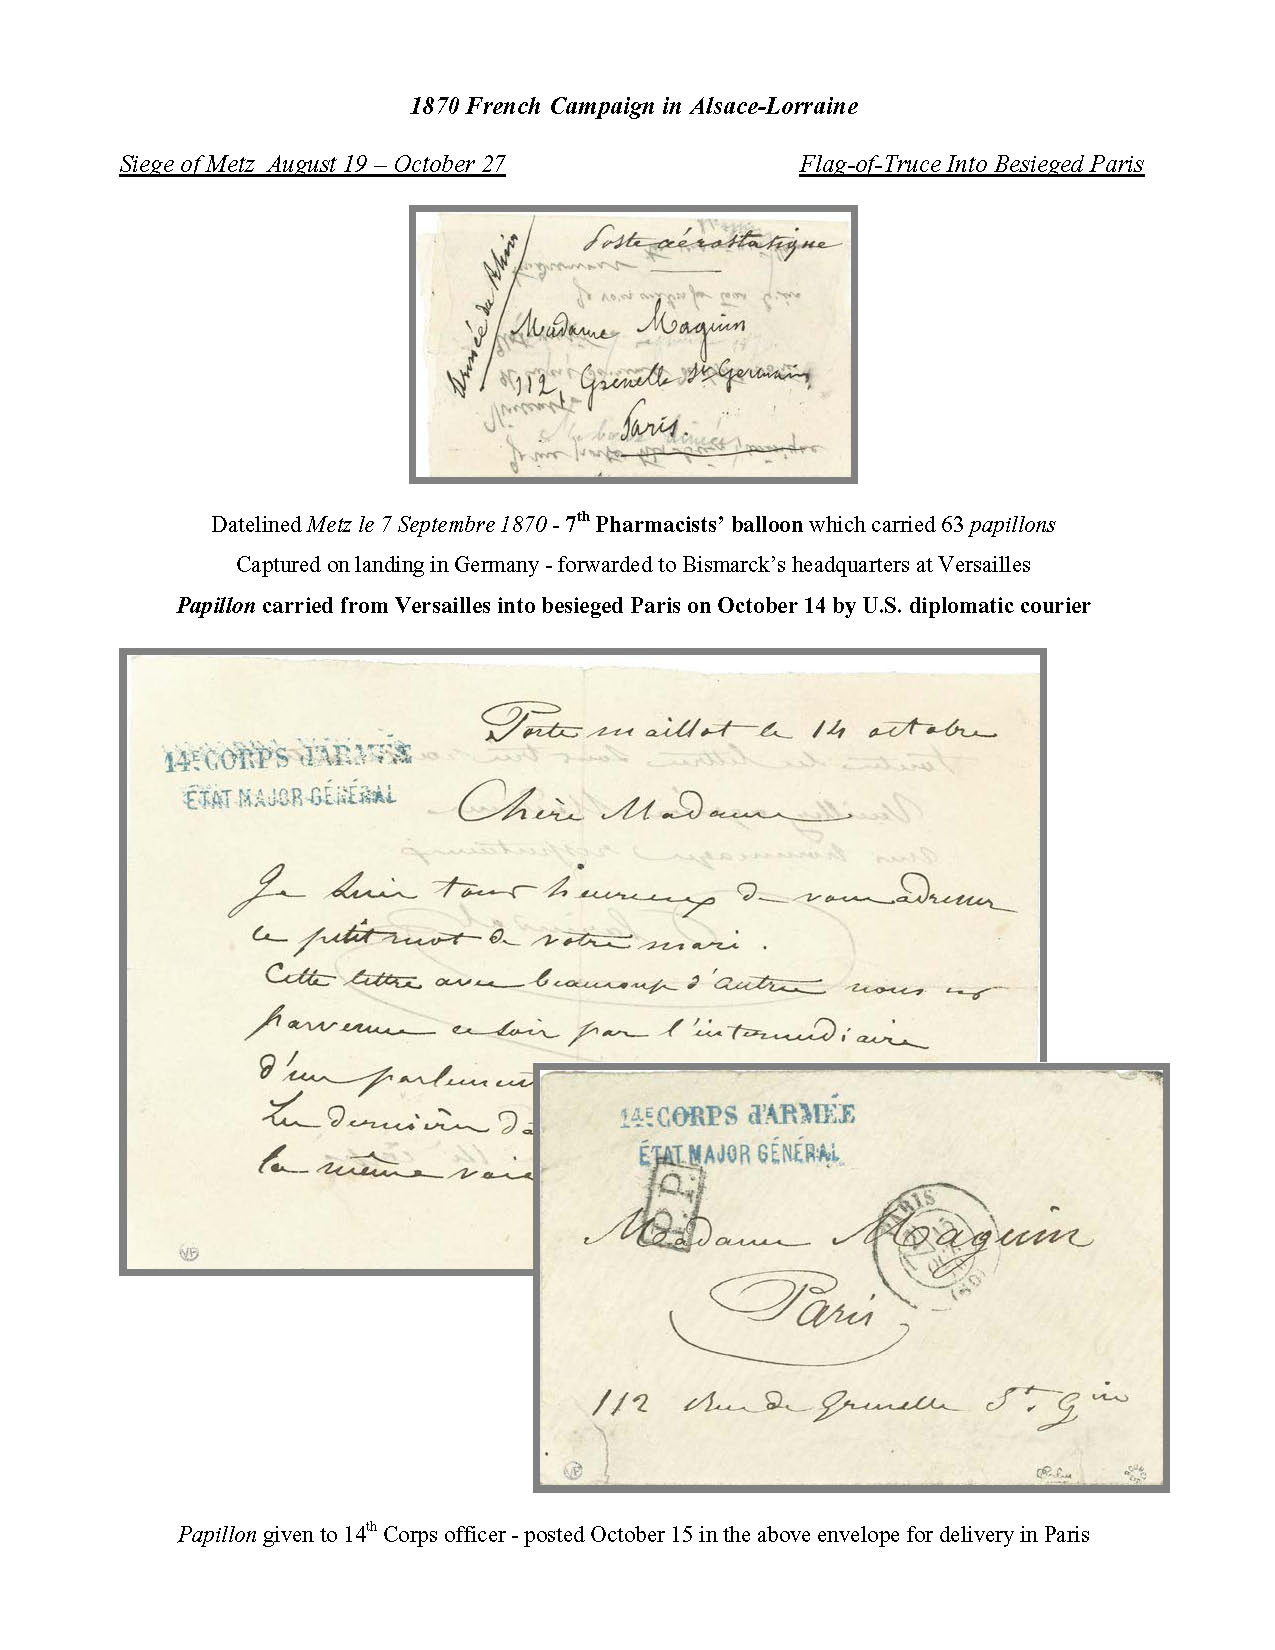 1870 French Campaign in Alsace-Lorraine
Siege of Metz August 19 – October 27
Flag-of-Truce Into Besieged Paris
Poste aérostatique
Armée du Rhin
Madame Maguin
112, Grenelle St Germain,
Paris.
Datelined Metz le 7 Septembre 1870 - 7th Pharmacists’ balloon which carried 63 papillons
Captured on landing in Germany - forwarded to Bismarck’s headquarters at Versailles
Papillon carried from Versailles into besieged Paris on October 14 by U.S. diplomatic courier
Porte maillot le 14 octobre
14E CORPS d'ARMÉE
ÉTAT MAJOR GÉNÉRAL
Chère Madame
Je suis tout heureux de vous adresser
ce petit mot de votre mari.
Cette lettre avec beaucoup d'autres nous est
parvenue ce soir par l'intermédiaire
d'un parlement
la même voie
14E CORPS d'ARMÉE
ÉTAT MAJOR GÉNÉRAL
P.P.
PARIS
(60)
Madame Maguin
Paris
112 rue de Grenelle St. Gin
Papillon given to 14th Corps officer - posted October 15 in the above envelope for delivery in Paris